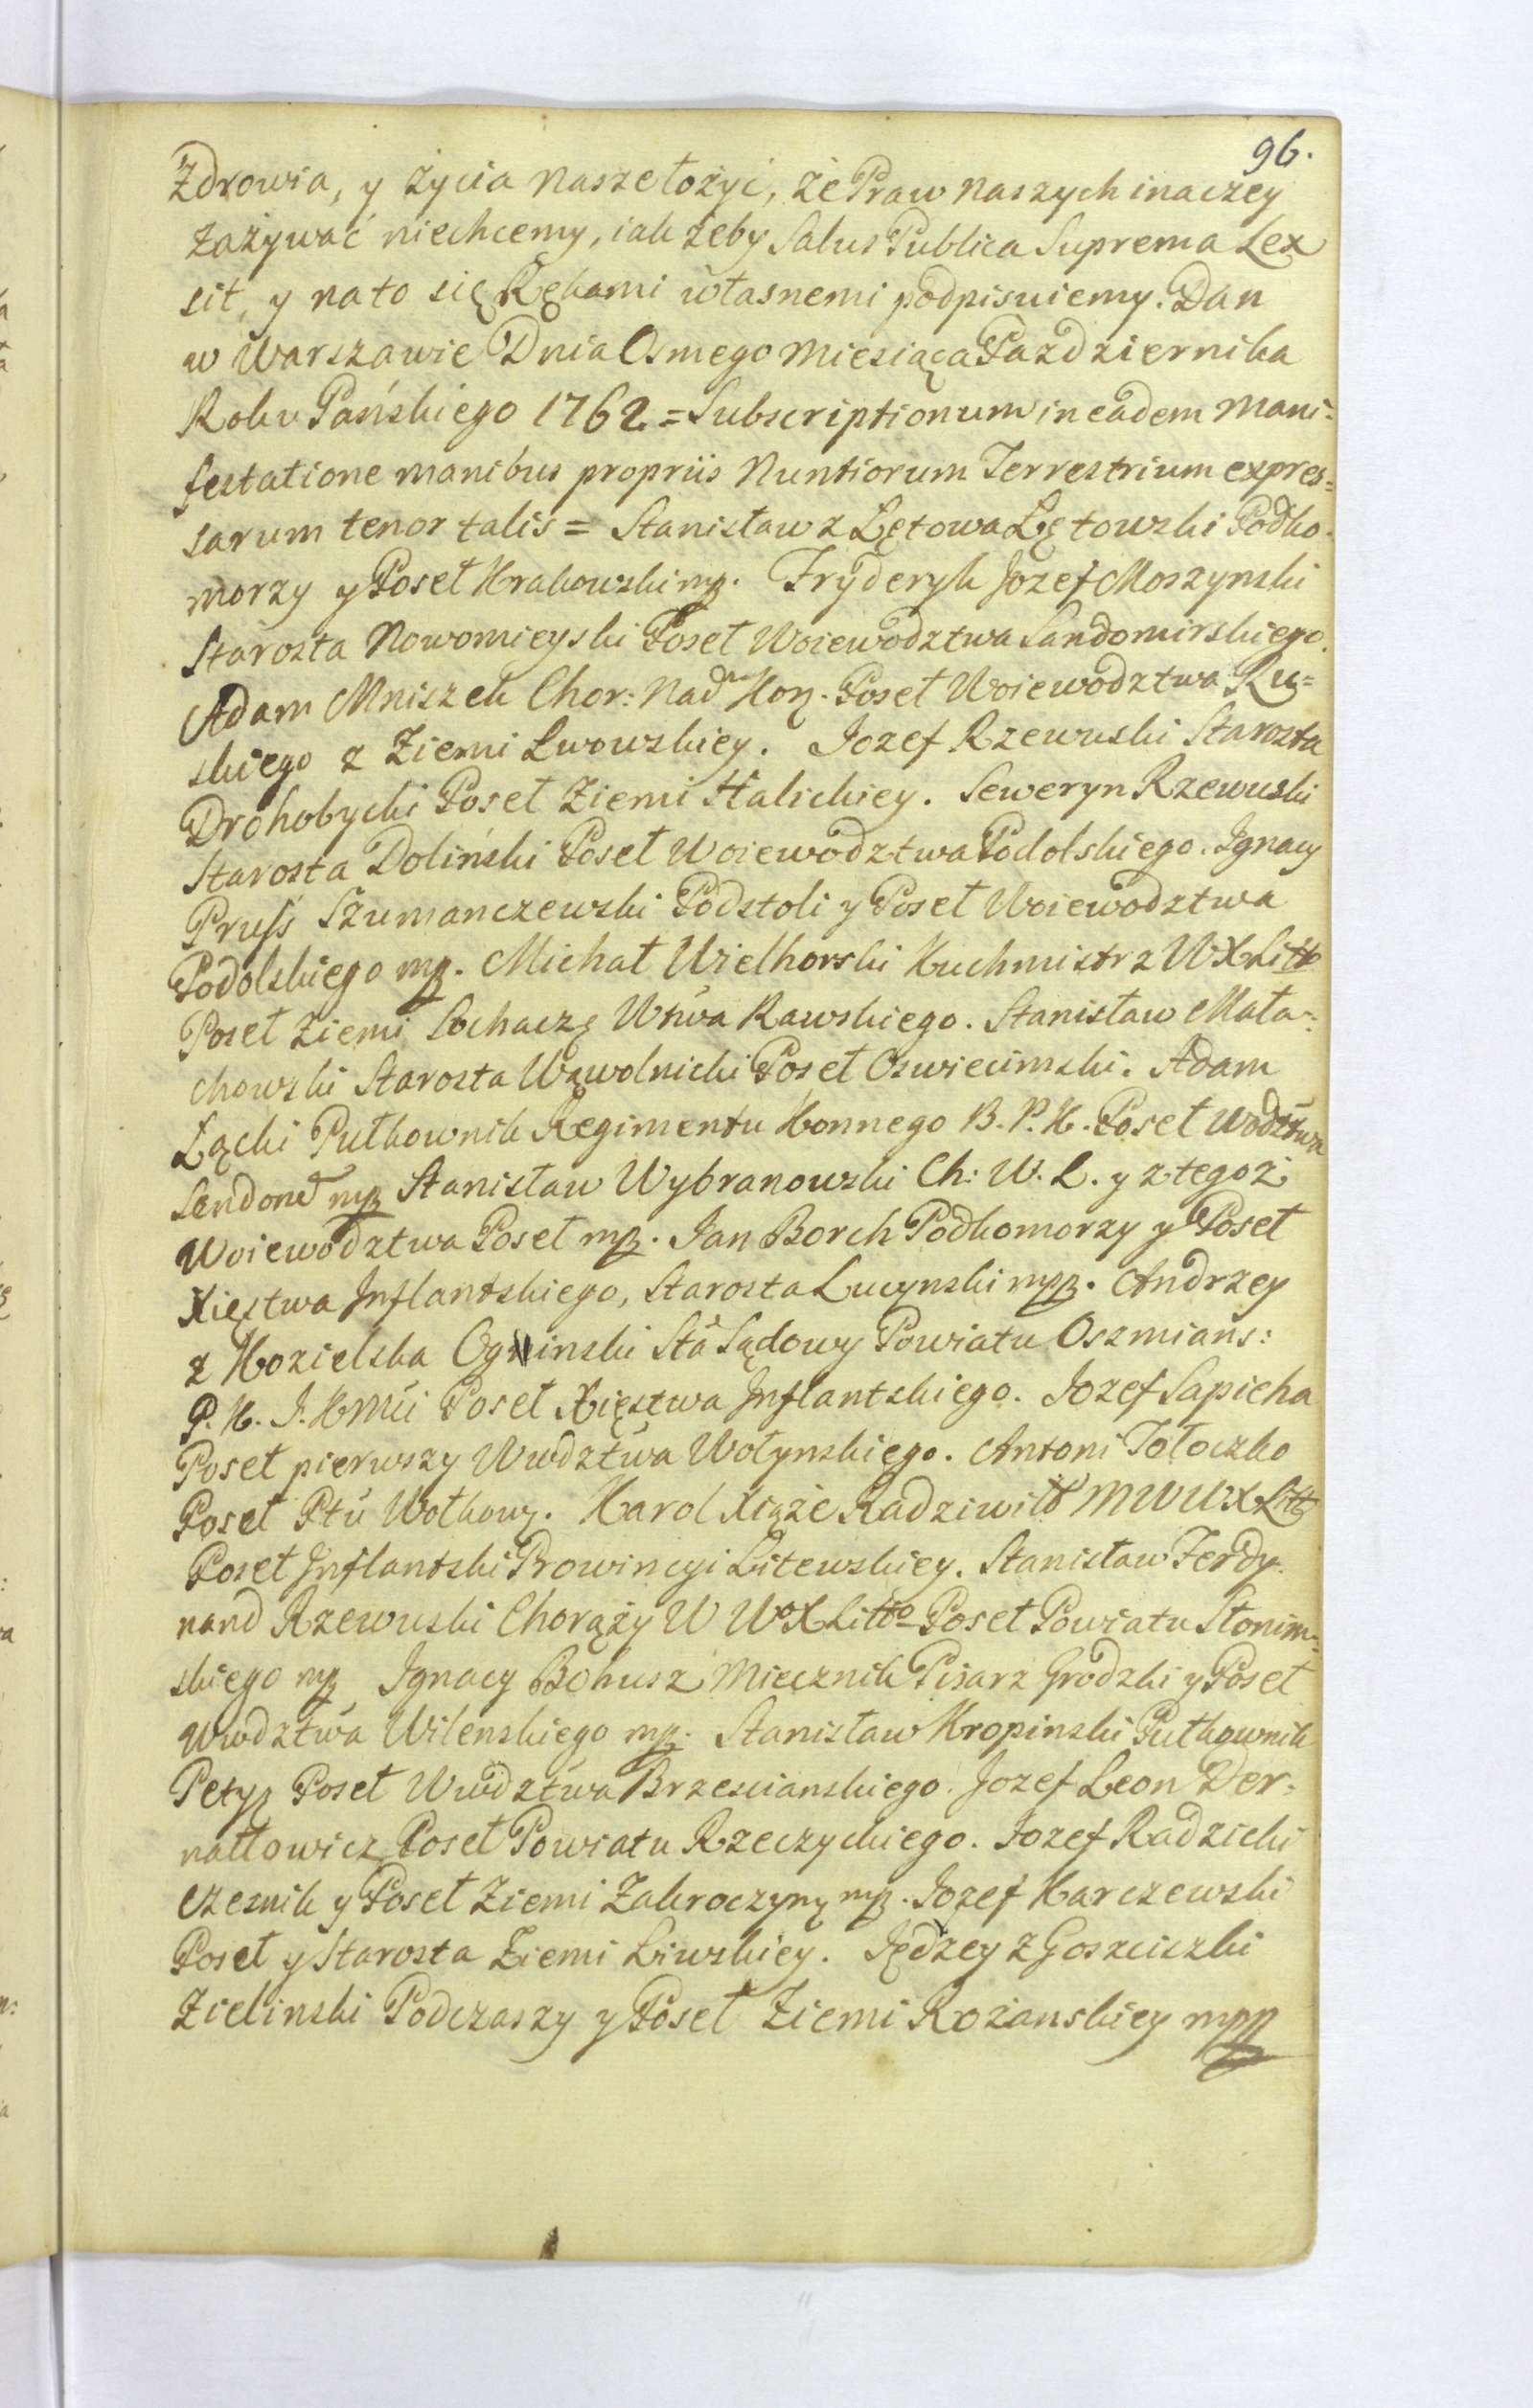 96.
Zdrowia, y życia nasze łożyć, że Praw naszych inaczey
zażywać niechcemy, iak żeby Salus Publica Suprema Lex
sit, y na to się Rękami własnemi podpisuiemy. Dan
w Warszawie Dnia Osmego Miesiąca Pazdziernika
Roku Pańskiego 1762 = Subscriptionum in eadem Mani=
festatione manibus propriis Nuntiorum Terrestrium expres=
sarum tenor talis = Stanisław z Łętowa Łętowski Podko-
morzy y Poseł Krakowski mp. Fryderyk Jozef Moszynski
Starosta Nowomieyski Poseł Woiewodztwa Sandomirskiego.
Adam Mniszek Chor: Nad Kor. Poseł Woiewodztwa Ru=
skiego z Ziemi Lwowskiey. Jozef Rzewuski Starosta
Drohobycki Poseł Ziemi Halickiey. Seweryn Rzewuski
Starosta Doliński Poseł Woiewodztwa Podolskiego. Ignacy
Pruss Szumanczewski Podstoli y Poseł Woiewodztwa
Podolskiego mp. Michał Wielhorski Kuchmistrz WXLitt
Poseł Ziemi Sochacz Wtwa Rawskiego. Stanisław Mała=
chowski Starosta Wąwolnicki Poseł Oswiecimski. Adam
Łącki Pułkownik Regimentu Konnego B. P. K. Poseł Wodztwa
Sendom mp Stanisław Wybranowski Ch: W. L. y z tegoż
Woiewodztwa Poseł mp. Jan Borch Podkomorzy y Poseł
Xięstwa Inflantskiego, Starosta Lucynski mpp. Andrzey
z Kozielska Oginski Sta Sądowy Powiatu Oszmians:
P. K. J. KMci Poseł Xięstwa Inflantskiego. Jozef Sapieha
Poseł pierwszy Wwdztwa Wołynskiego. Antoni Tołoczko
Poseł Ptu Wołkow. Karol Xiąże Radziwiłł MWWXLitt
Poseł Inflantski Prowincyi Litewskiey. Stanisław Ferdy-
nand Rzewuski Chorąży W WoXLitto Poseł Powiatu Słonim=
skiego mp Ignacy Bohusz Miecznik Pisarz Grodzki y Poseł
Wwdztwa Wilenskiego mp. Stanisław Kropinski Pułkownik
Petyh Poseł Wwdztwa Brzescianskiego. Jozef Leon Der=
nałłowicz Poseł Powiatu Rzeczyckiego. Jozef Radzicki
czesnik y Poseł Ziemi Zakroczym mp. Jozef Karczewski
Poseł y Starosta Ziemi Liwskiey. Jędzey z Goszciczki
Zielinski Podczaszy y Poseł Ziemi Rożanskiey mpp